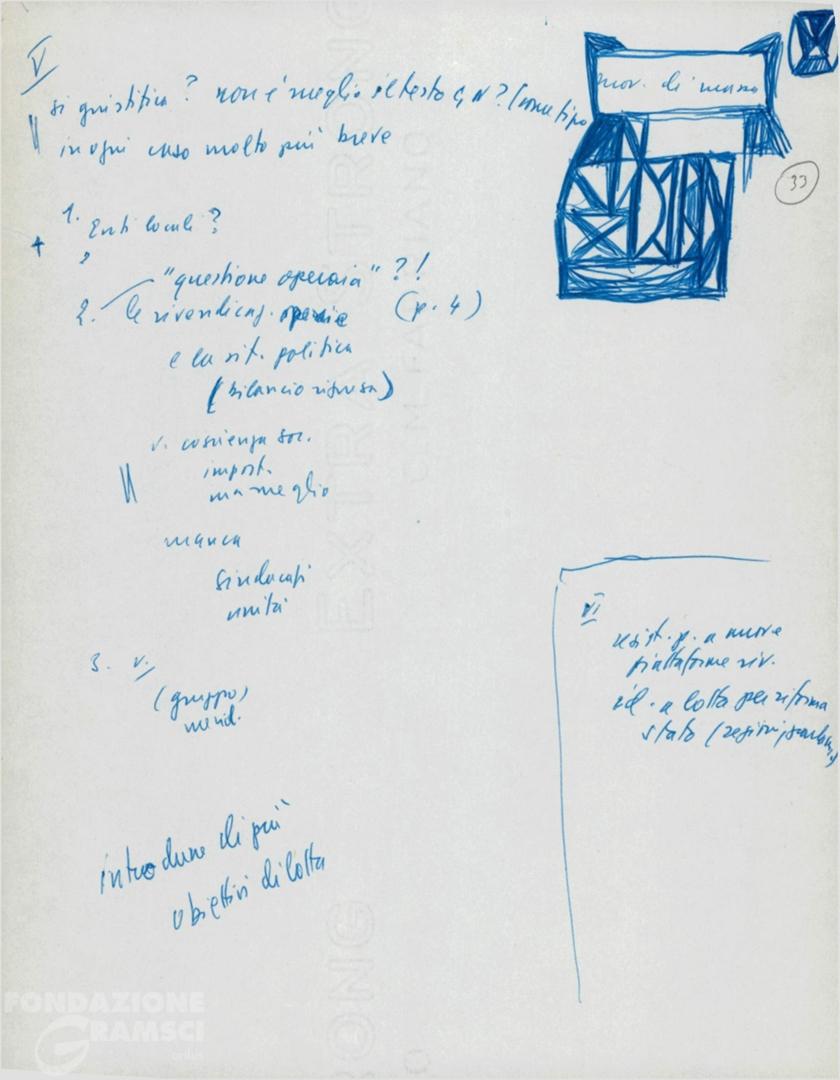 V
si giustifica? non è meglio il testo G N? (come tipo
in ogni caso molto più breve
mov. di massa
33
1. Enti locali?
+
?
"questione operaia"?!
2. le rivendicaz. operaie (p. 4)
e la sit. politica
(bilancio
v. coscienza soc.
impost.
ma meglio
manca
sindacati
unità
3. v.
(gruppo)
merid.
introdurre di più
obiettivi di lotta
VI
p. a nuove
piattaforme riv.
id. a lotta per riforma
stato (regioni,
EXTRA STRONG
FONDAZIONE
GRAMSCI
onlus